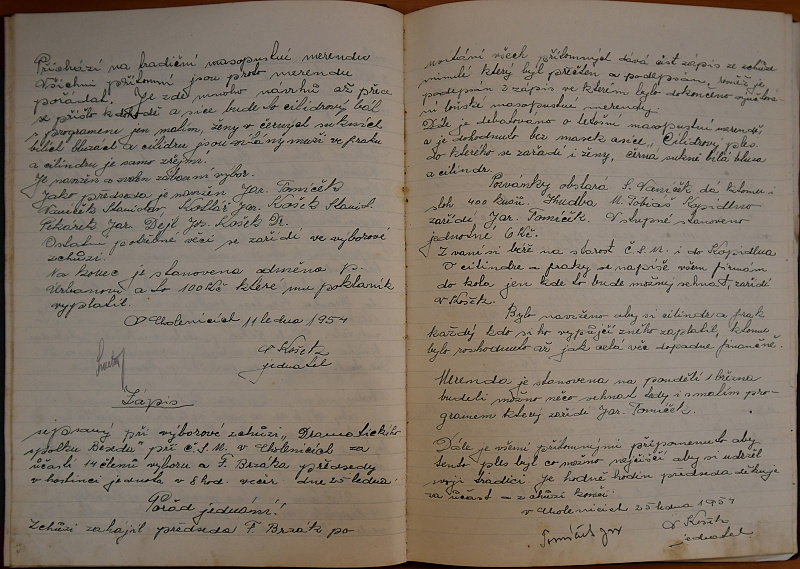 Přichází na tradiční masopustní merendu
Všichni přítomní jsou proto merendu
pořádat. Je zde mnoho návrhů až přece
se přišlo k dohodě a sice bude to cilidrový bál
s programem jen malím, ženy v černých sukních
bílích bluzách a cilidru jsou vítány muži ve fraku
a cilindru je samo zřejmé.
Je navržen a zvolen zábavní výbor.
Jako předseda je navržen Jar. Tomíček
Vaníček Stanislav Kotlář Jar. Košek Stanisl.
Pekárek Jar Déjl Jos. Košek Dr.
Ostatní potřebné věci se zařídí ve výborové
schůzi.
Na konec je stanovena odměna p.
Urbanovi a to 100 Kč které mu pokladník
vyplatil.
V Cholenicích 11 ledna 1954
V Košek
jednatel
Zápis
sepsaný při výborové schůzi „Dramatického
spolku Beseda při Č.S.M. v Cholenicích za
účasti 14 členů výboru a F. Brzáka předsedy
v hostinci jednota v 8 hod. večír dne 25 ledna.
Pořad jednání!
Schůzi zahájil předseda F. Brzák po
uvítání všech přítomných dává číst zápis ze schůze
minulé který byl přečten a podepsán, rovněž je
podepsán i zápis ve kterém bylo dokončeno vyúčtová-
ní loňské masopustní merendy.
Dále je debatováno o letošní masopustní merendě,
a je dohodnuto bez masek a sice „Cilidrový ples.
do kterého se zařadí i ženy, černá sukně bílá bluza
a cilindr.
Pozvánky obstará S. Vaníček dá k tomu i
sloh 400 kusů. Hudba M. Tobiáš Kopidlno
zařídí Jar. Tomíček. Vstupné stanoveno
jednotné 6 kč.
Zvaní si béře na starost Č.S.M. i do Kopidlna
O cilindre a fraky se napíše všem firmám
do kola jen kde to bude možný sehnat, zařídí
V Košek
Bylo navrženo aby si cilindr a frak
každý kdo si ho vypůjčí zněho zaplatil, k tomu
bylo rozhodnuto až jak celá věc dopadne finančně.
Merenda je stanovena na pondělí 1 března
budeli možno něco sehnat tedy i s malím pro-
gramem který zařídí Jar. Tomíček.
Dále je všemi přítomnými připomenuto aby
tento ples byl co možno nejlišší aby si udržel
svoji tradici. Je hodně hodin předseda děkuje
za účast – schůzi končí.
v Cholenicích 25 ledna 1954
V Košek
jednatel